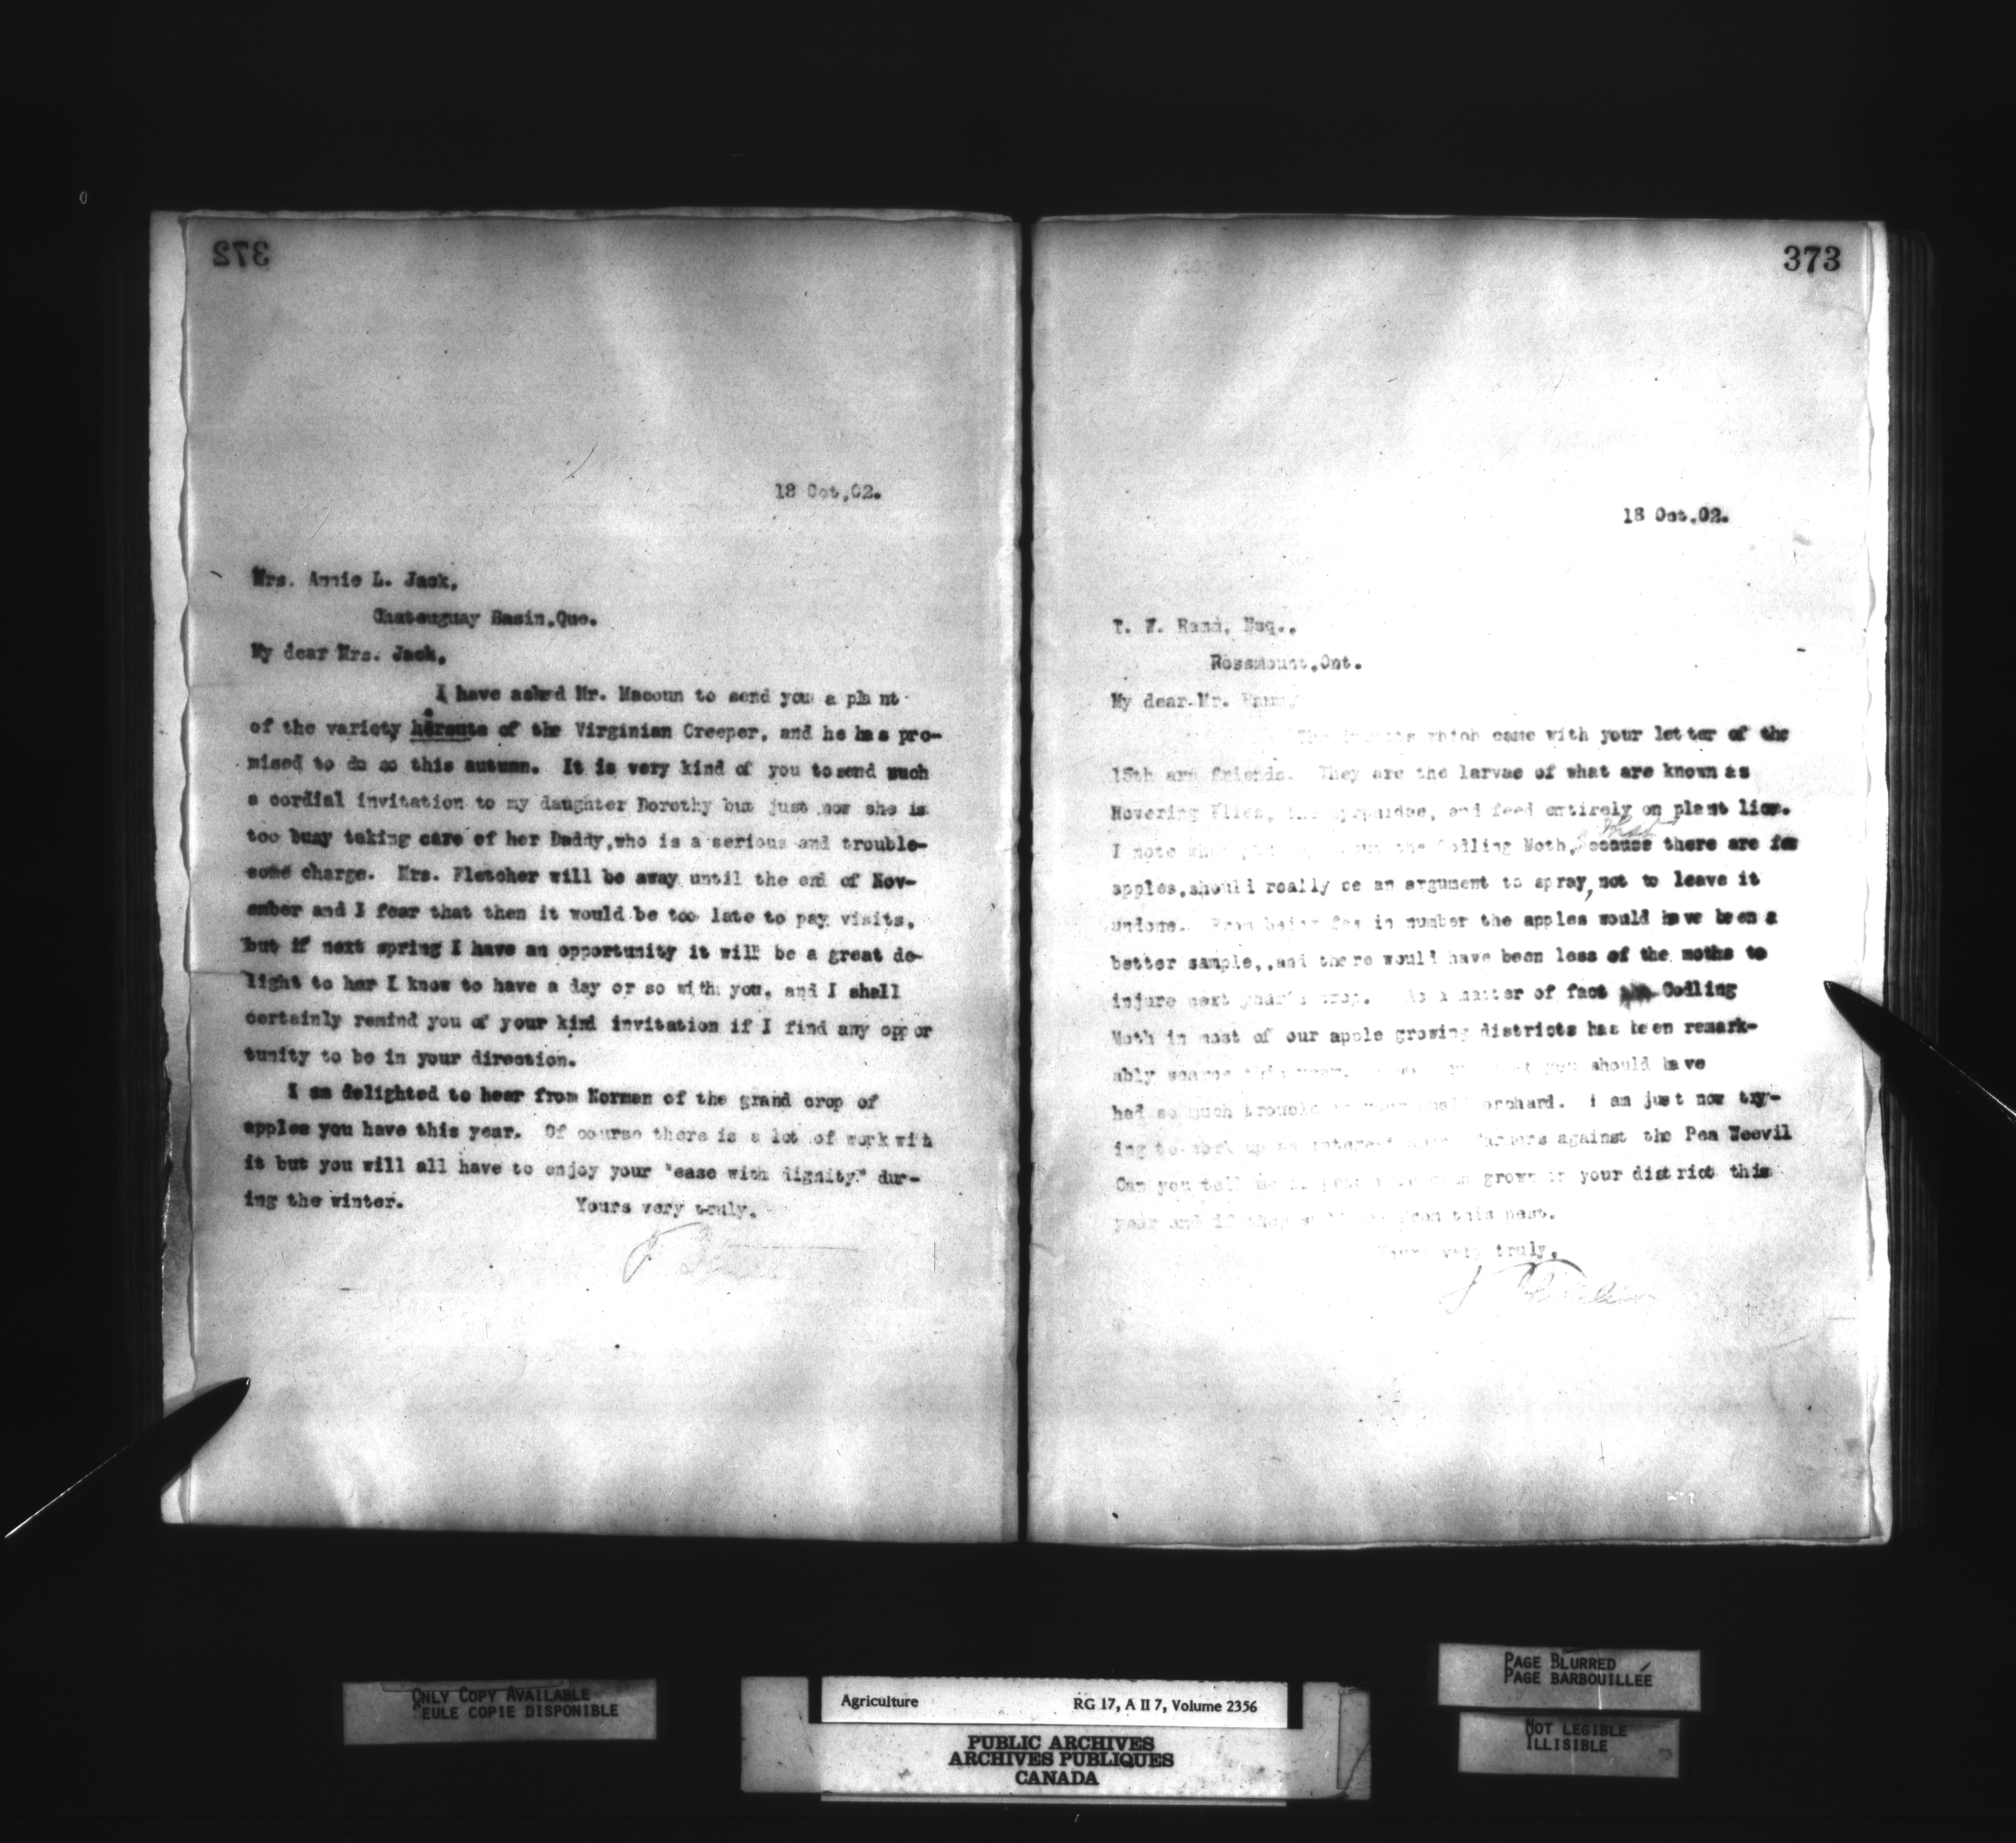 372
18 Oct.02.
Mrs. Annie L. Jack,
Chateuguay Basin.Que.
My dear Mrs. Jack,
I have asked Mr. Macoun to send you a pla nt
of the variety hirsuta of the Virginian Creeper, and he has pro-
mised to do so this autumn. It is very kind of you to send such
a cordial invitation to my daughter Dorothy but just now she is
too busy taking care of her Daddy,who is a serious and trouble-
some charge. Mrs. Fletcher will be away until the end of Nov-
ember and I fear that then it would be too late to pay visits,
but if next spring I have an opportunity it will be a great de-
light to her I know to have a day or so with you, and I shall
certainly remind you of your kind invitation if I find any oppor
tunity to be in your direction.
I am delighted to hear from Norman of the grand crop of
apples you have this year. Of course there is a lot of work with
it but you will all have to enjoy your "ease with dignity" dur-
ing the winter.
Yours very truly,
373
18 Oct.02.
T. W. Esq.,
Rossmount,Ont.
My dear Mr.
which came with your letter of the
15th are friends. They are the larvae of what are known as
Hovering Flies, and feed entirely on plant lice.
I note the Codling Moth, that
because there are few
apples,should really be an argument to spray,not to leave it
undone. From being few in number the apples would have been a
better sample,,and there would have been less of the moths to
injure next year's crop. As a matter of fact Codling
Moth in most of our apple growing districts has been remark-
ably scarce you should have
had so much trouble orchard. I am just now try-
ing to work up an interest farmers against the Pea Weevil
Can you tell me grown in your district this
year and if they from this pest.
very truly,
ONLY COPY AVAILABLE
SEULE COPIE DISPONIBLE
Agriculture RG 17, A II 7, Volume 2356
PUBLIC ARCHIVES
ARCHIVES PUBLIQUES
CANADA
PAGE BLURRED
PAGE BARBOUILLÉE
NOT LEGIBLE
ILLISIBLE